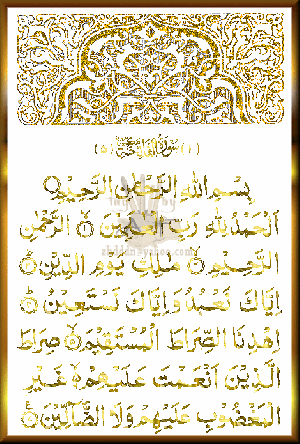 (١) سورة الفاتحة (٥)
بِسْمِ اللهِ الرَّحْمٰنِ الرَّحِيْمِ
اَلْحَمْدُ لِلّٰهِ رَبِّ الْعٰلَمِيْنَ ١ الرَّحْمٰنِ
الرَّحِيْمِ ٢ مٰلِكِ يَوْمِ الدِّيْنِ ٣
اِيَّاكَ نَعْبُدُ وَاِيَّاكَ نَسْتَعِيْنُ ٤
اِهْدِنَا الصِّرَاطَ الْمُسْتَقِيْمَ ٥ صِرَاطَ
الَّذِيْنَ اَنْعَمْتَ عَلَيْهِمْ ٦ غَيْرِ
الْمَغْضُوْبِ عَلَيْهِمْ وَلَا الضَّآلِّيْنَ ٧